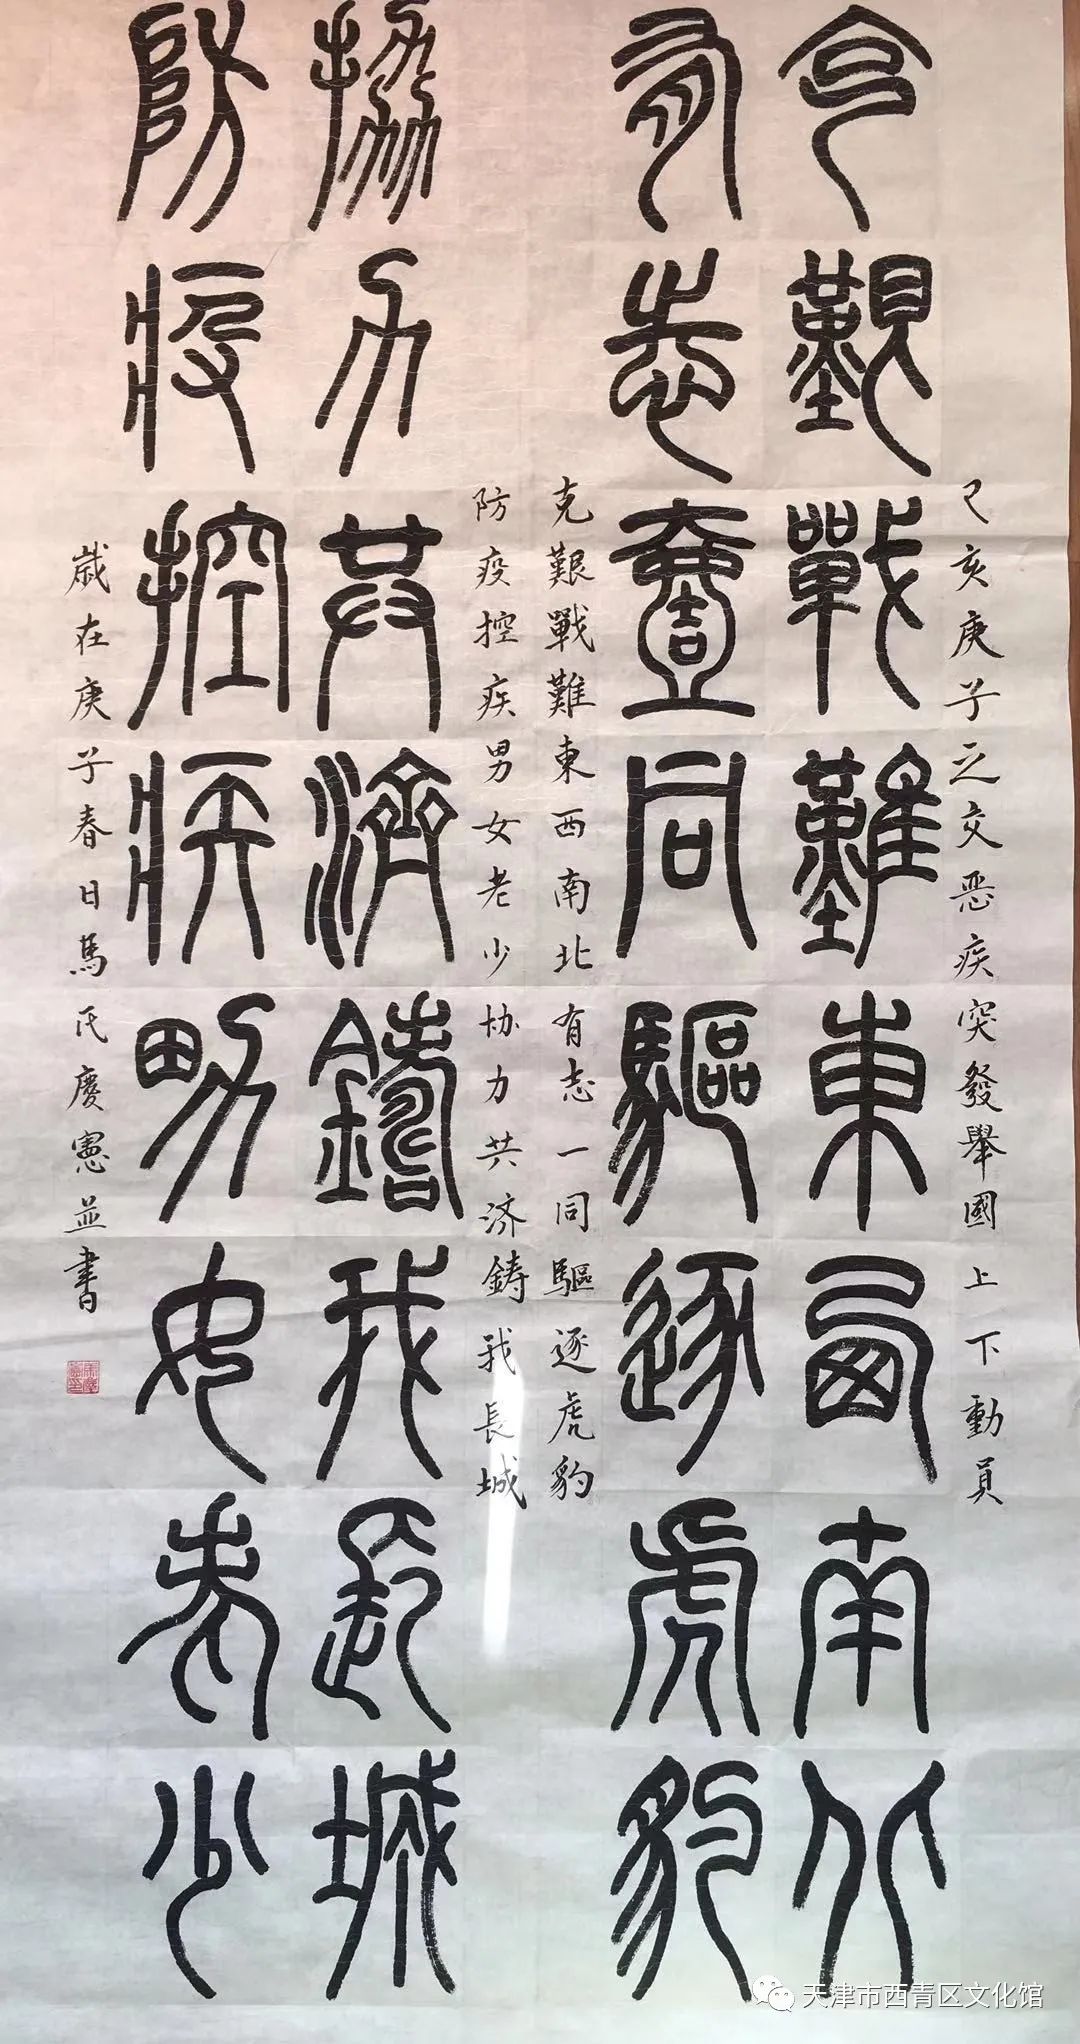 己亥庚子之交恶疾突發舉國上下動員
克艱戰難東西南北
有志壹同驅逐虎豹
克艱戰難東西南北有志一同驅逐虎豹
防疫控疾男女老少协力共济鋳我長城
防疫控疾男女老少
協力共濟鑄我長城
歲在庚子春日馬氏慶憲並書
天津市西青区文化馆